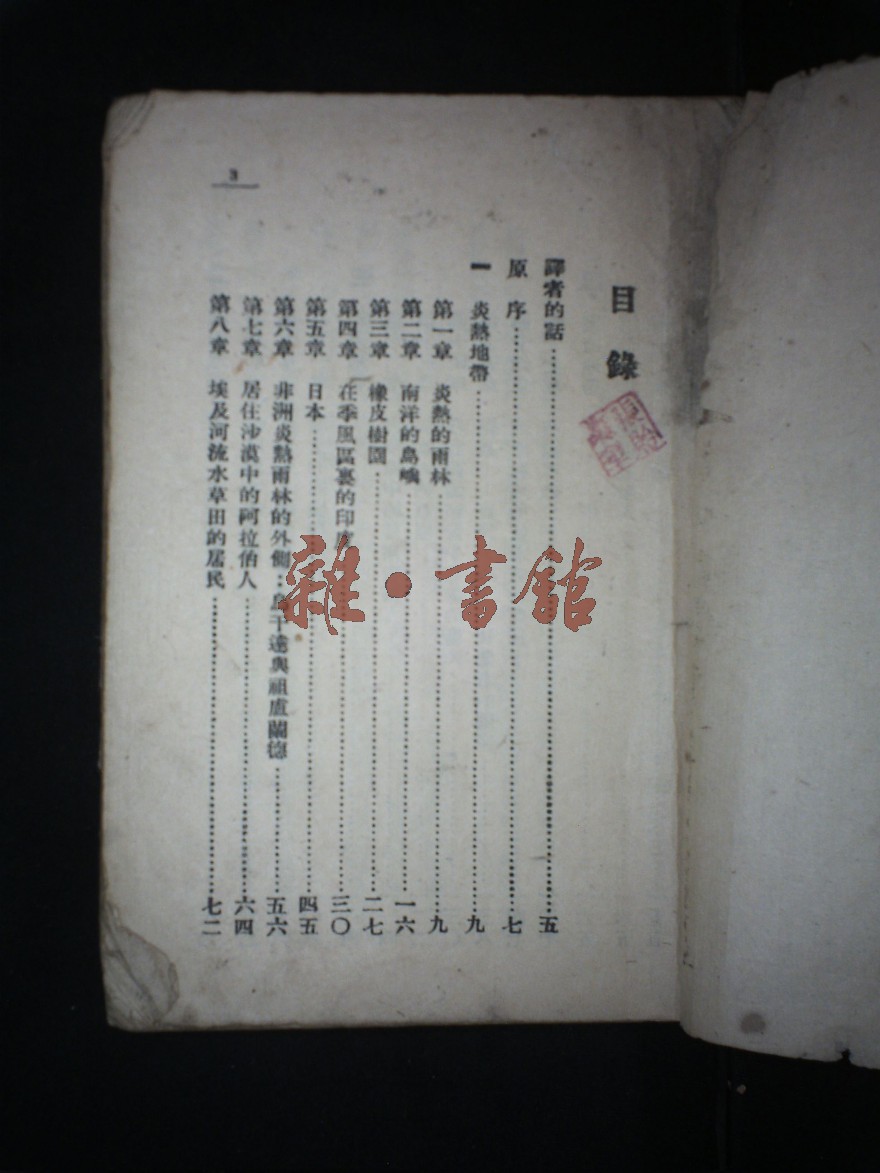 3
目錄
譯者的話……五
原序……七
一 炎熱地帶……九
第一章 炎熱的雨林……九
第二章 南洋的島嶼……一六
第三章 橡皮樹園……二七
第四章 在季風區裏的印度……三〇
第五章 日本……四五
第六章 非洲炎熱雨林的外側：烏干達與祖盧蘭德……五六
第七章 居住沙漠中的阿拉伯人……六四
第八章 埃及河流水草田的居民……七二
雜·書館